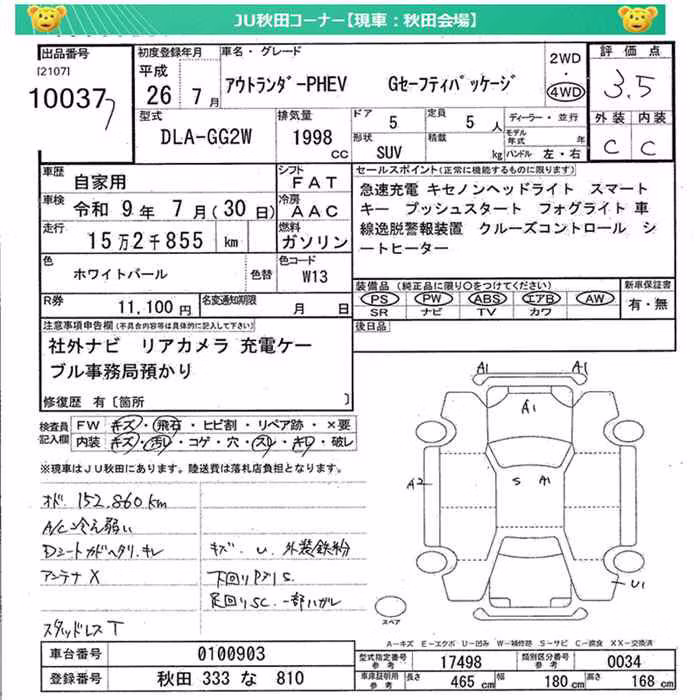 JU秋田コーナー【現車：秋田会場】
出品番号
[2107]
10037
7
初度登録年月
平成
26 7月
車名・グレード
アウトランダーPHEV Gセーフティパッケージ
2WD
・
4WD
評価点
3.5
外装 内装
C C
型式
DLA-GG2W
排気量
1998
cc
ドア
5
定員
5 人
形状
SUV
積載
kg
ディーラー・並行
モデル年式 年
ハンドル 左・右
車歴
自家用
シフト
FAT
車検
令和 9年 7月(30日)
冷房
AAC
走行
15万2千855 km
燃料
ガソリン
色
ホワイトパール
色替
色コード
W13
R券
11,100円
名変通知期限
月 日
セールスポイント(正常に機能するものに限ります)
急速充電 キセノンヘッドライト スマート
キー プッシュスタート フォグライト 車
線逸脱警報装置 クルーズコントロール シ
ートヒーター
装備品 (純正品に限り○をつけてください)
PS PW ABS エアB AW
SR ナビ TV カワ
新車保証書
有・無
後日品
注意事項申告欄(不具合内容等は具体的に記入して下さい)
社外ナビ リアカメラ 充電ケー
ブル事務局預かり
修復歴 有〔箇所 〕
検査員
記入欄
FW キズ・飛石・ヒビ割・リペア跡・×要
内装 キズ・汚レ・コゲ・穴・スレ・キレ・破レ
※現車はJU秋田にあります。陸送費は落札店負担となります。
オド. 152,860km
A/C冷え弱い
Dシートカドヘタリ.キレ
アンテナX
スタッドレスT
キズ.U.外装鉄粉
下回りP大S
足回りSC.一部ハガレ
A1 A1
A1
A2
S A1
U1
スペア
A－キズ E－エクボ U－凹み W－補修跡 S－サビ C－腐食 XX－交換済
車台番号
0100903
登録番号
秋田 333 な 810
型式指定番号
参考
17498
類別区分番号
参考
0034
車庫証明用
参考
長さ
465 cm
幅
180 cm
高さ
168 cm